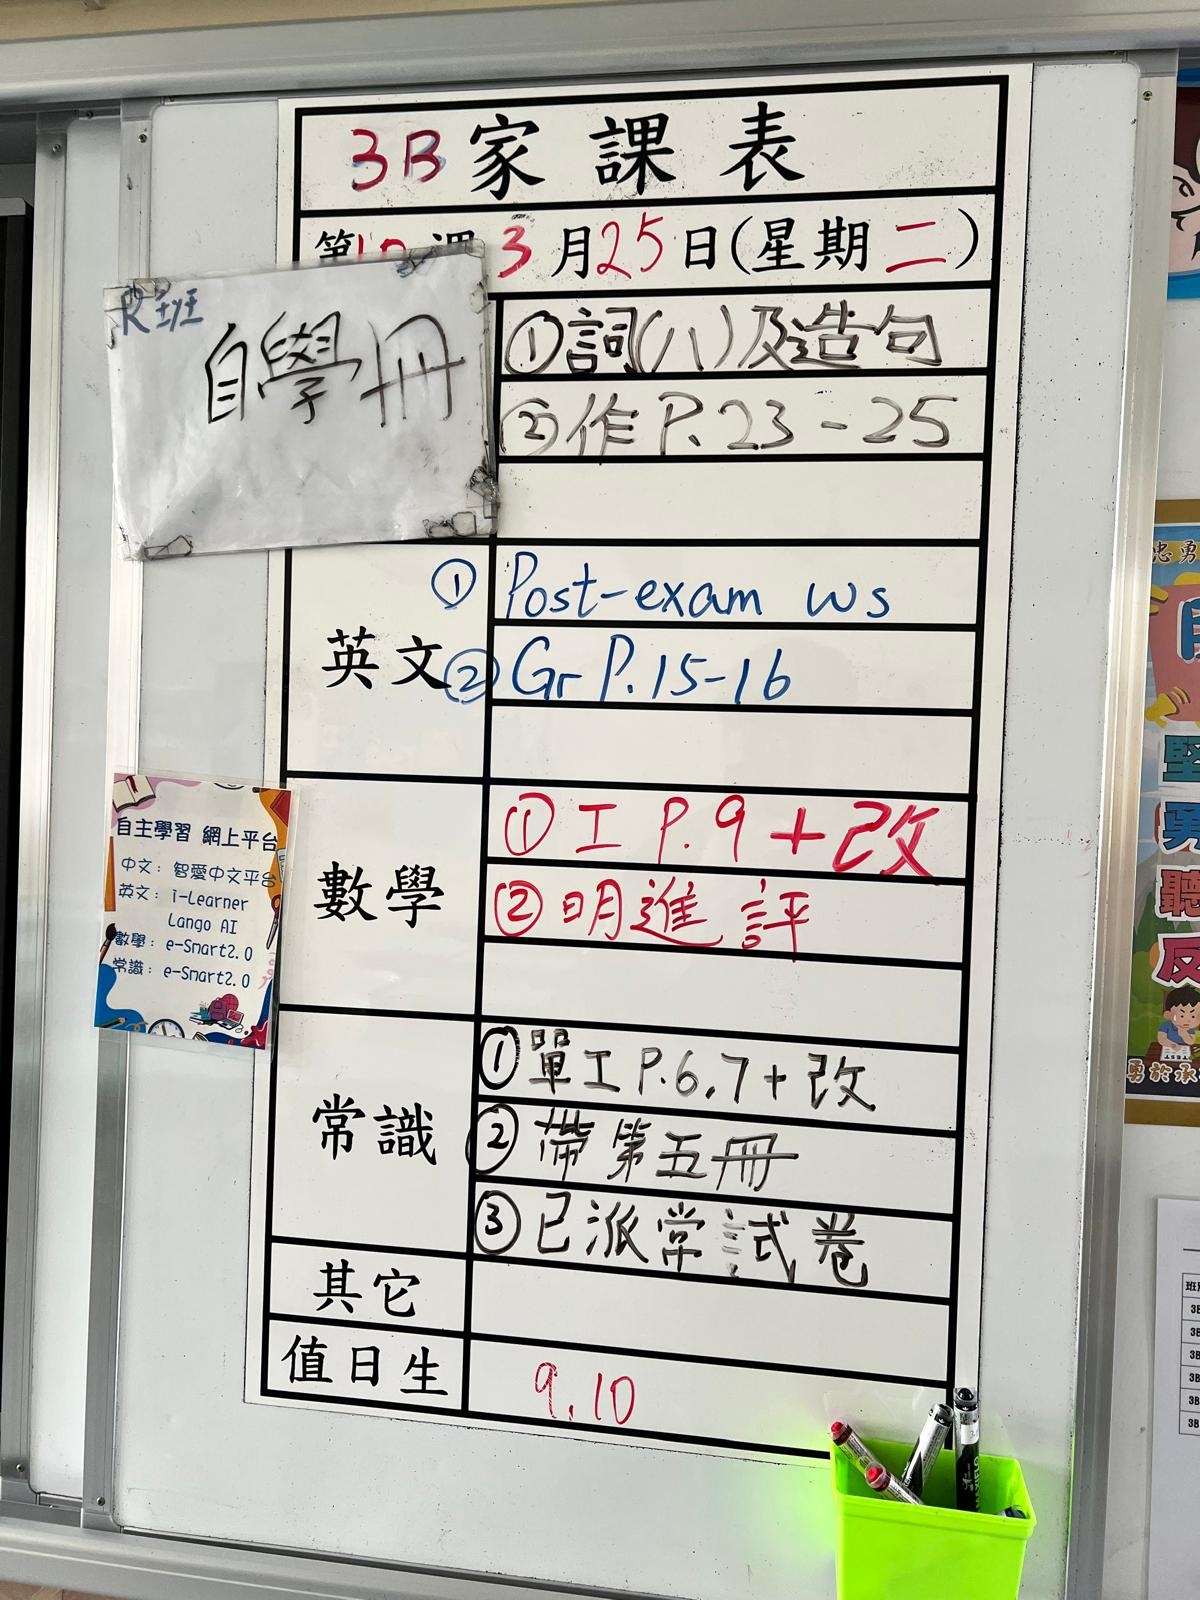 3B 家課表
3月25日(星期二)
R班
自學冊
①詞(八)及造句
②作P.23-25
英文
① Post-exam ws
② Gr P.15-16
數學
① 工 P.9+改
② 明進評
常識
① 單工P.6,7+改
② 帶第五冊
③ 已派常試卷
其它
值日生
9,10
自主學習 網上平台
中文：智愛中文平台
英文：i-Learner
Lango AI
數學：e-Smart2.0
常識：e-Smart2.0
忠勇
堅
勇
聽
反
勇於承
班
3B
3B
3B
3B
3B
3B